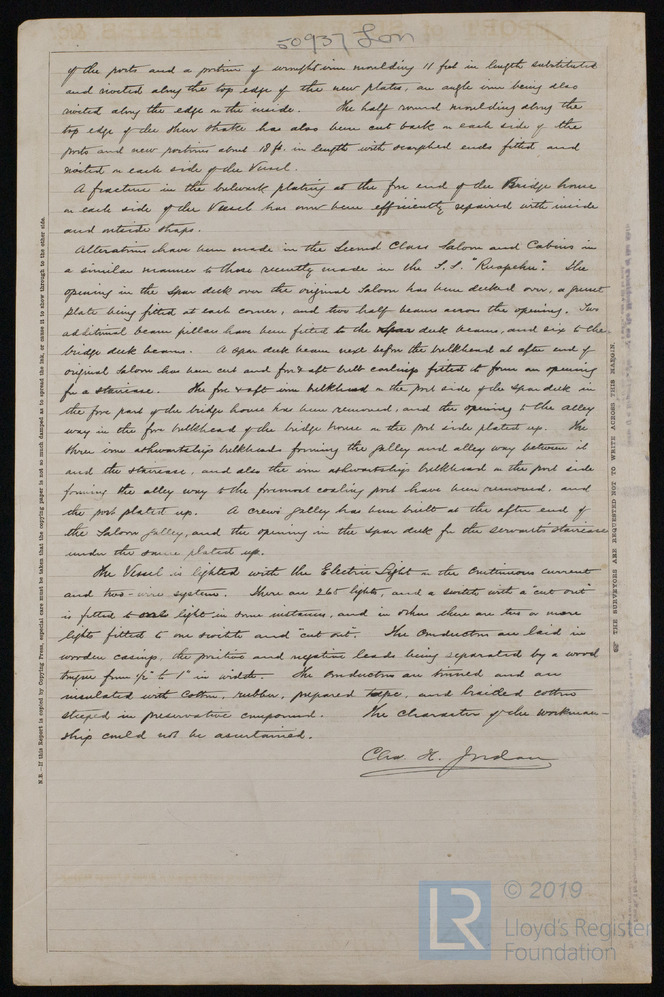 50937 Lon
of the ports and a portion of wrought iron moulding 11 feet in length substituted
and riveted along the top edge of the new plates, an angle iron being also
riveted along the edge on the inside. The half round moulding along the
top edge of the sheer strake has also been cut back on each side of the
ports and new portions about 18 ft. in length with scarphed ends fitted and
riveted on each side of the Vessel.
A fracture in the bulwark plating at the fore end of the Bridge house
on each side of the Vessel has now been efficiently repaired with inside
and outside straps.
Alterations have been made in the Second Class Saloon and Cabins in
a similar manner to those recently made in the S.S. "Ruapehu". The
opening in the spar deck over the original Saloon has been decked over, a gusset
plate being fitted at each corner, and two half beams across the opening. Two
additional beam pillars have been fitted to the spar deck beams, and six to the
bridge deck beams. A spar deck beam next before the bulkhead at after end of
original Saloon has been cut and fore & aft coatings fitted to form an opening
for a staircase. The fore & aft iron bulkhead on the port side of the spar deck in
the fore part of the bridge house has been removed, and the opening to the alley
way in the fore bulkhead of the bridge house on the port side plated up. The
three iron athwartship bulkheads forming the galley and alley way between it
and the staircase, and also the iron athwartship bulkhead on the port side
forming the alley way to the foremost coaling port have been removed, and
the port plated up. A crew's galley has been built at the after end of
the Saloon galley, and the opening in the spar deck for the servants' staircase
under the same plated up.
The Vessel is lighted with the Electric Light on the Continuous current
and two-wire system. There are 265 lights, and a switch with a "cut out"
is fitted to one light in some instances, and in others there are two or more
lights fitted to one switch and "cut out". The Conductors are laid in
wooden casings, the positive and negative leads being separated by a wood
tongue from ½" to 1" in width. The Conductors are tinned and are
insulated with Cotton, rubber, prepared tape, and braided cotton
steeped in preservative compound. The character of the workman-
ship could not be ascertained.
Chas. H. Jordan
N.B.—If this Report is copied by Copying Press, especial care must be taken that the copying paper is not so much damped as to spread the ink, or cause it to show through to the other side.
THE SURVEYORS ARE REQUESTED NOT TO WRITE ACROSS THIS MARGIN.
LR
© 2019
Lloyd's Register
Foundation